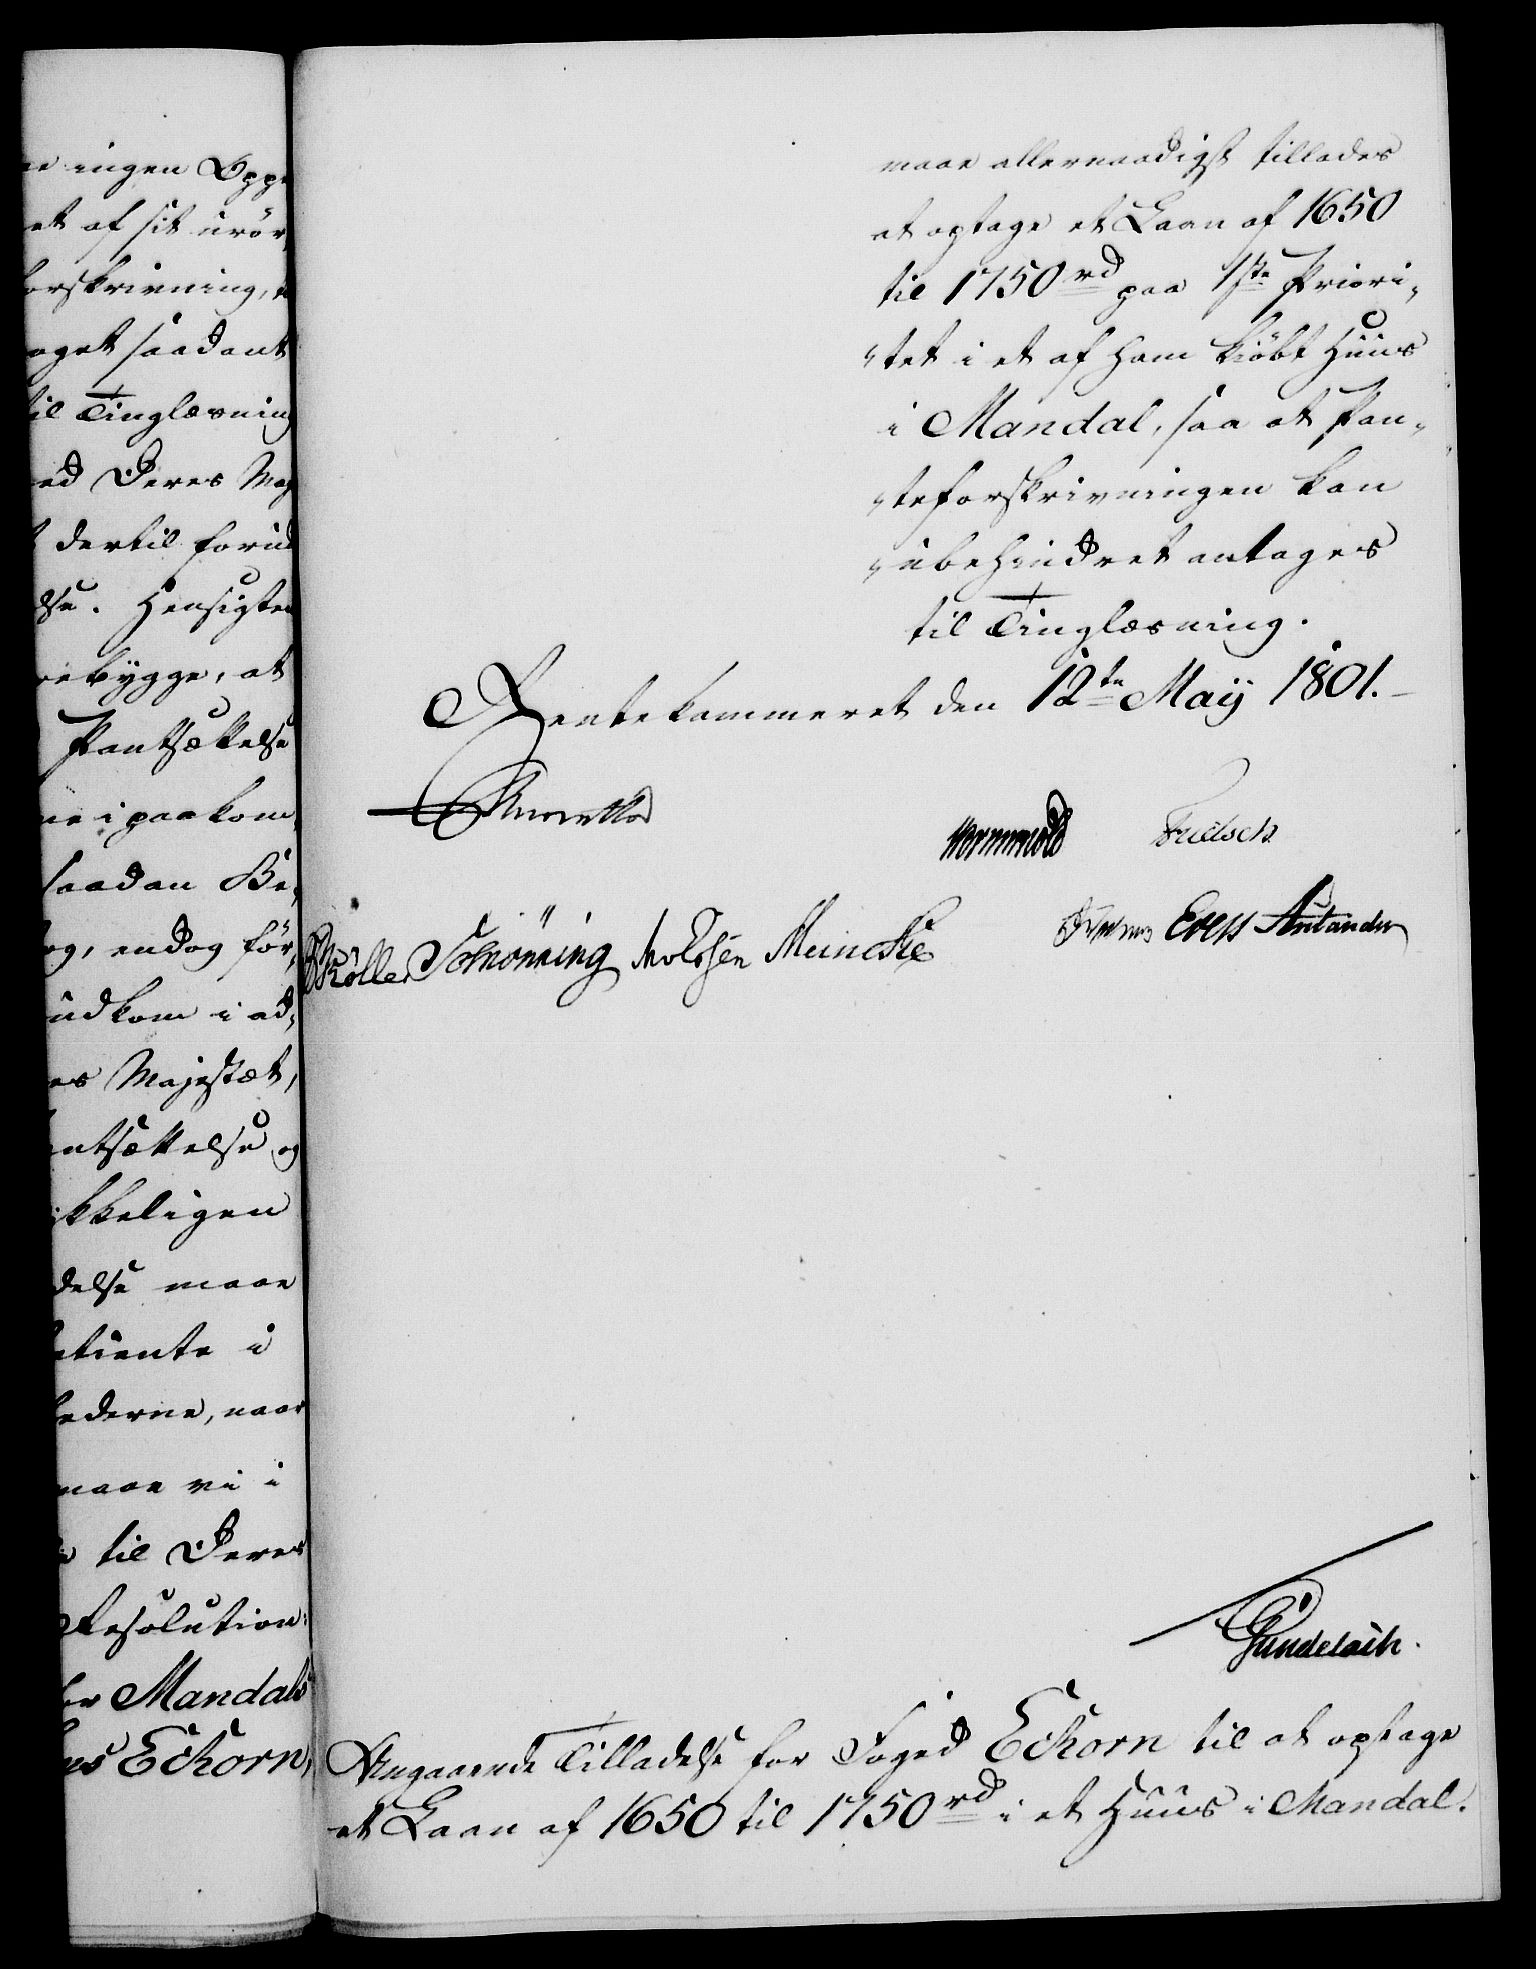 ingen Opp
et af sit urör,
orskrivning,
oget saadant
til Tinglæsning
ed Deres Maj
dertil forud
lse. Hensigten
rebygge, at
Pantsættelse
ne i paakom,
saadan Be,
og, endog för,
udkom i ad,
es Majestæt,
antsættelse og
ikkeligen
delse maae
etiente i
hederne, naar
maae vi i
til Deres
Resolution:
for Mandals
Eckorn,
maae allernaadigst tillades
at optage et Laan af 1650
til 1750 rd paa 1ste Priori,
"tet i et af ham kiöbt Huus
i Mandal, saa at Pan,
"teforskrivningen kan
"ubehindret antages
til Tinglæsning.
Rentekammeret den 12te Maij 1801.
Reventlow
Wormskiold
Müller Schrönning Meincke
Evers
Gundelach.
Angaaende Tilladelse for Foged Eckorn til at optage
et Laan af 1650 til 1750 rd i et Huus i Mandal.